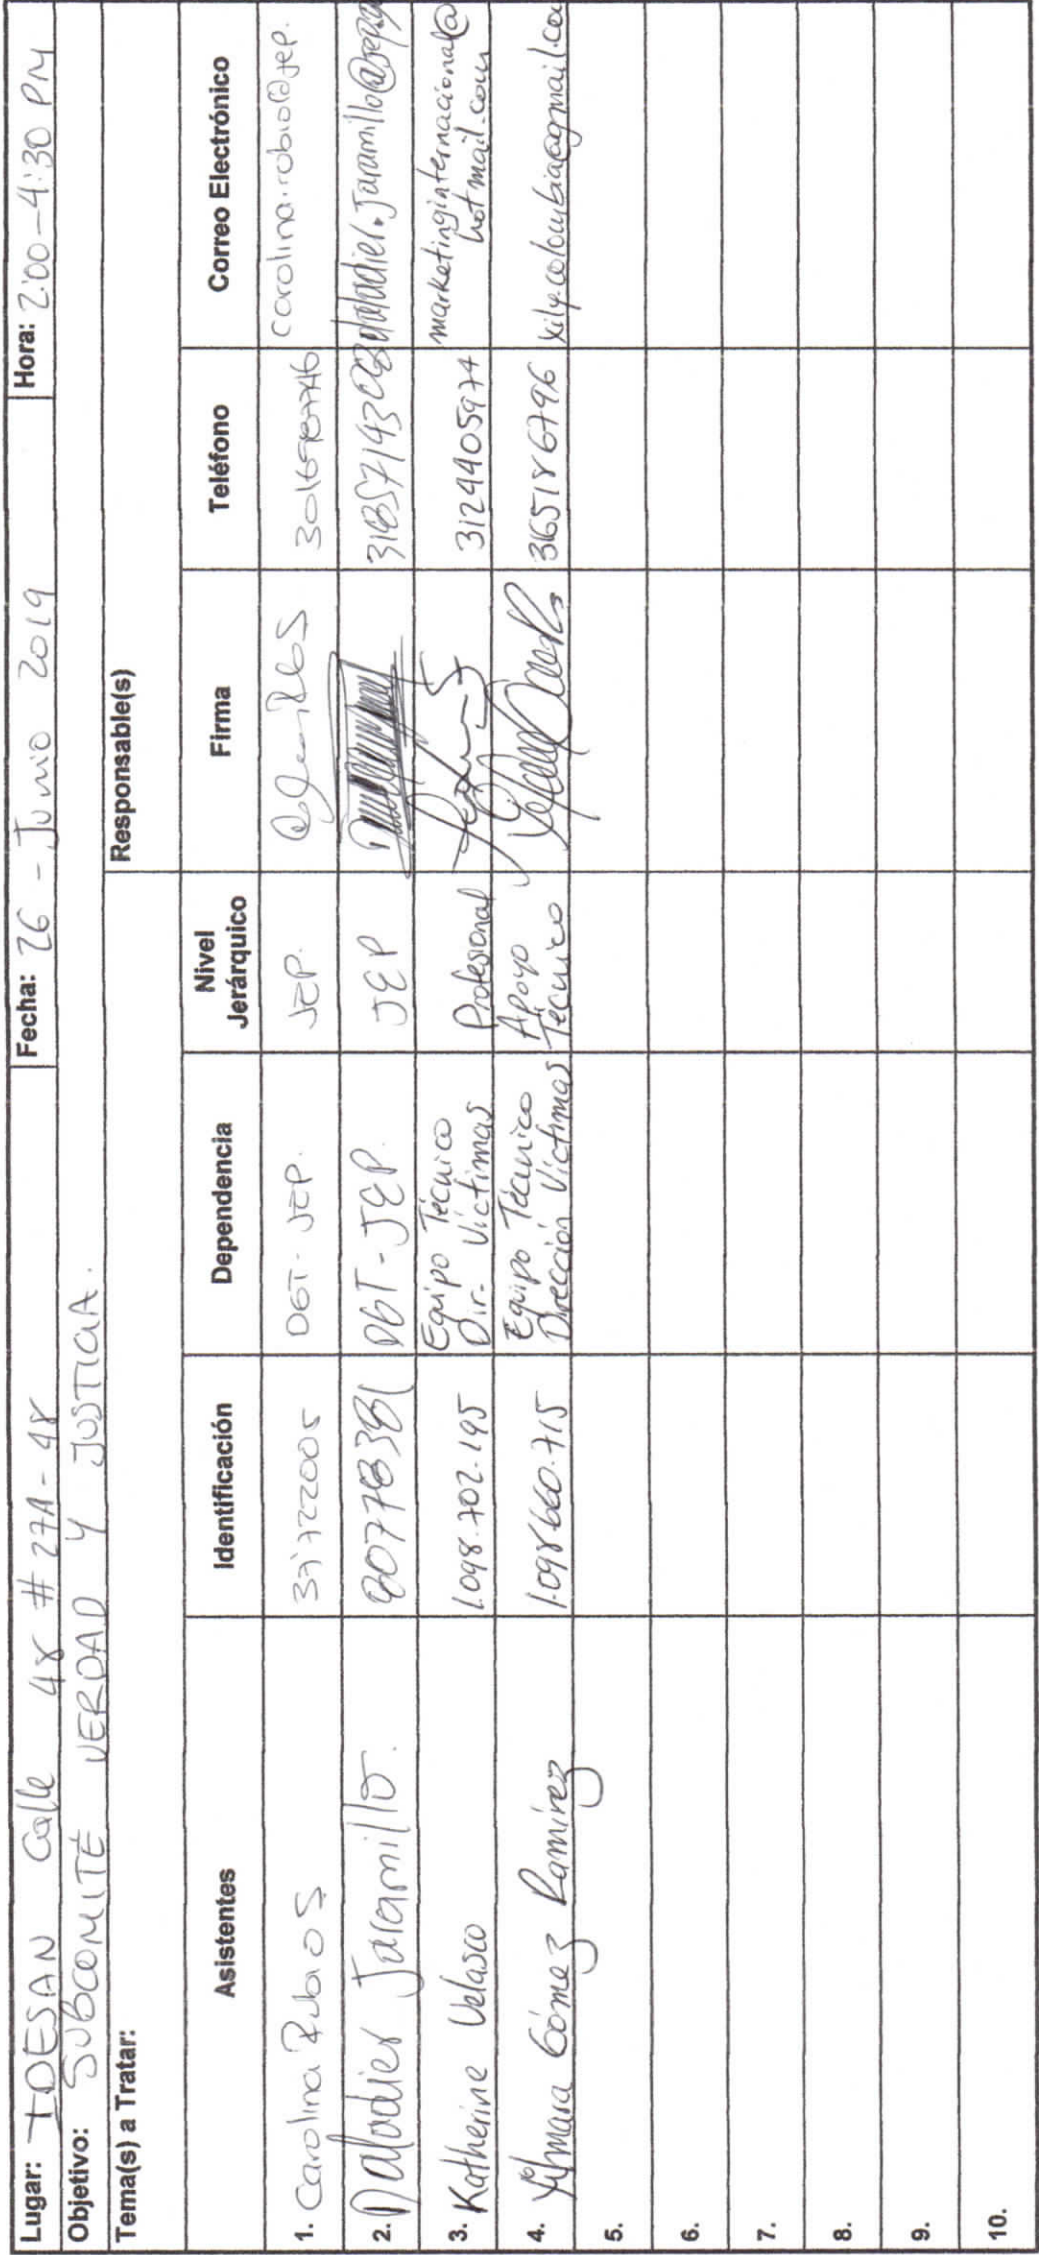 Lugar: IDESAN Calle 48 # 27A-48 Fecha: 26 - Junio 2019 Hora: 2:00-4:30 PM
Objetivo: SUBCOMITÉ VERDAD Y JUSTICIA.
Tema(s) a Tratar: Responsable(s)
Asistentes Identificación Dependencia Nivel Jerárquico Firma Teléfono Correo Electrónico
1. Carolina Rubio S 37722005 DGT-JEP. JEP. carolina.rubio@jep.
2. Daladier Jaramillo. 80778381 DGT-JEP. JEP daladier.Jaramillo@jep.go
3. Katherine Velasco 1.098.702.195 Equipo Técnico Dir. Víctimas Profesional 3124405974 marketinginternacional@
hotmail.com
4. Gómez Ramírez 1.098660.715 Equipo Técnico Dirección Víctimas Apoyo Técnico
5.
6.
7.
8.
9.
10.